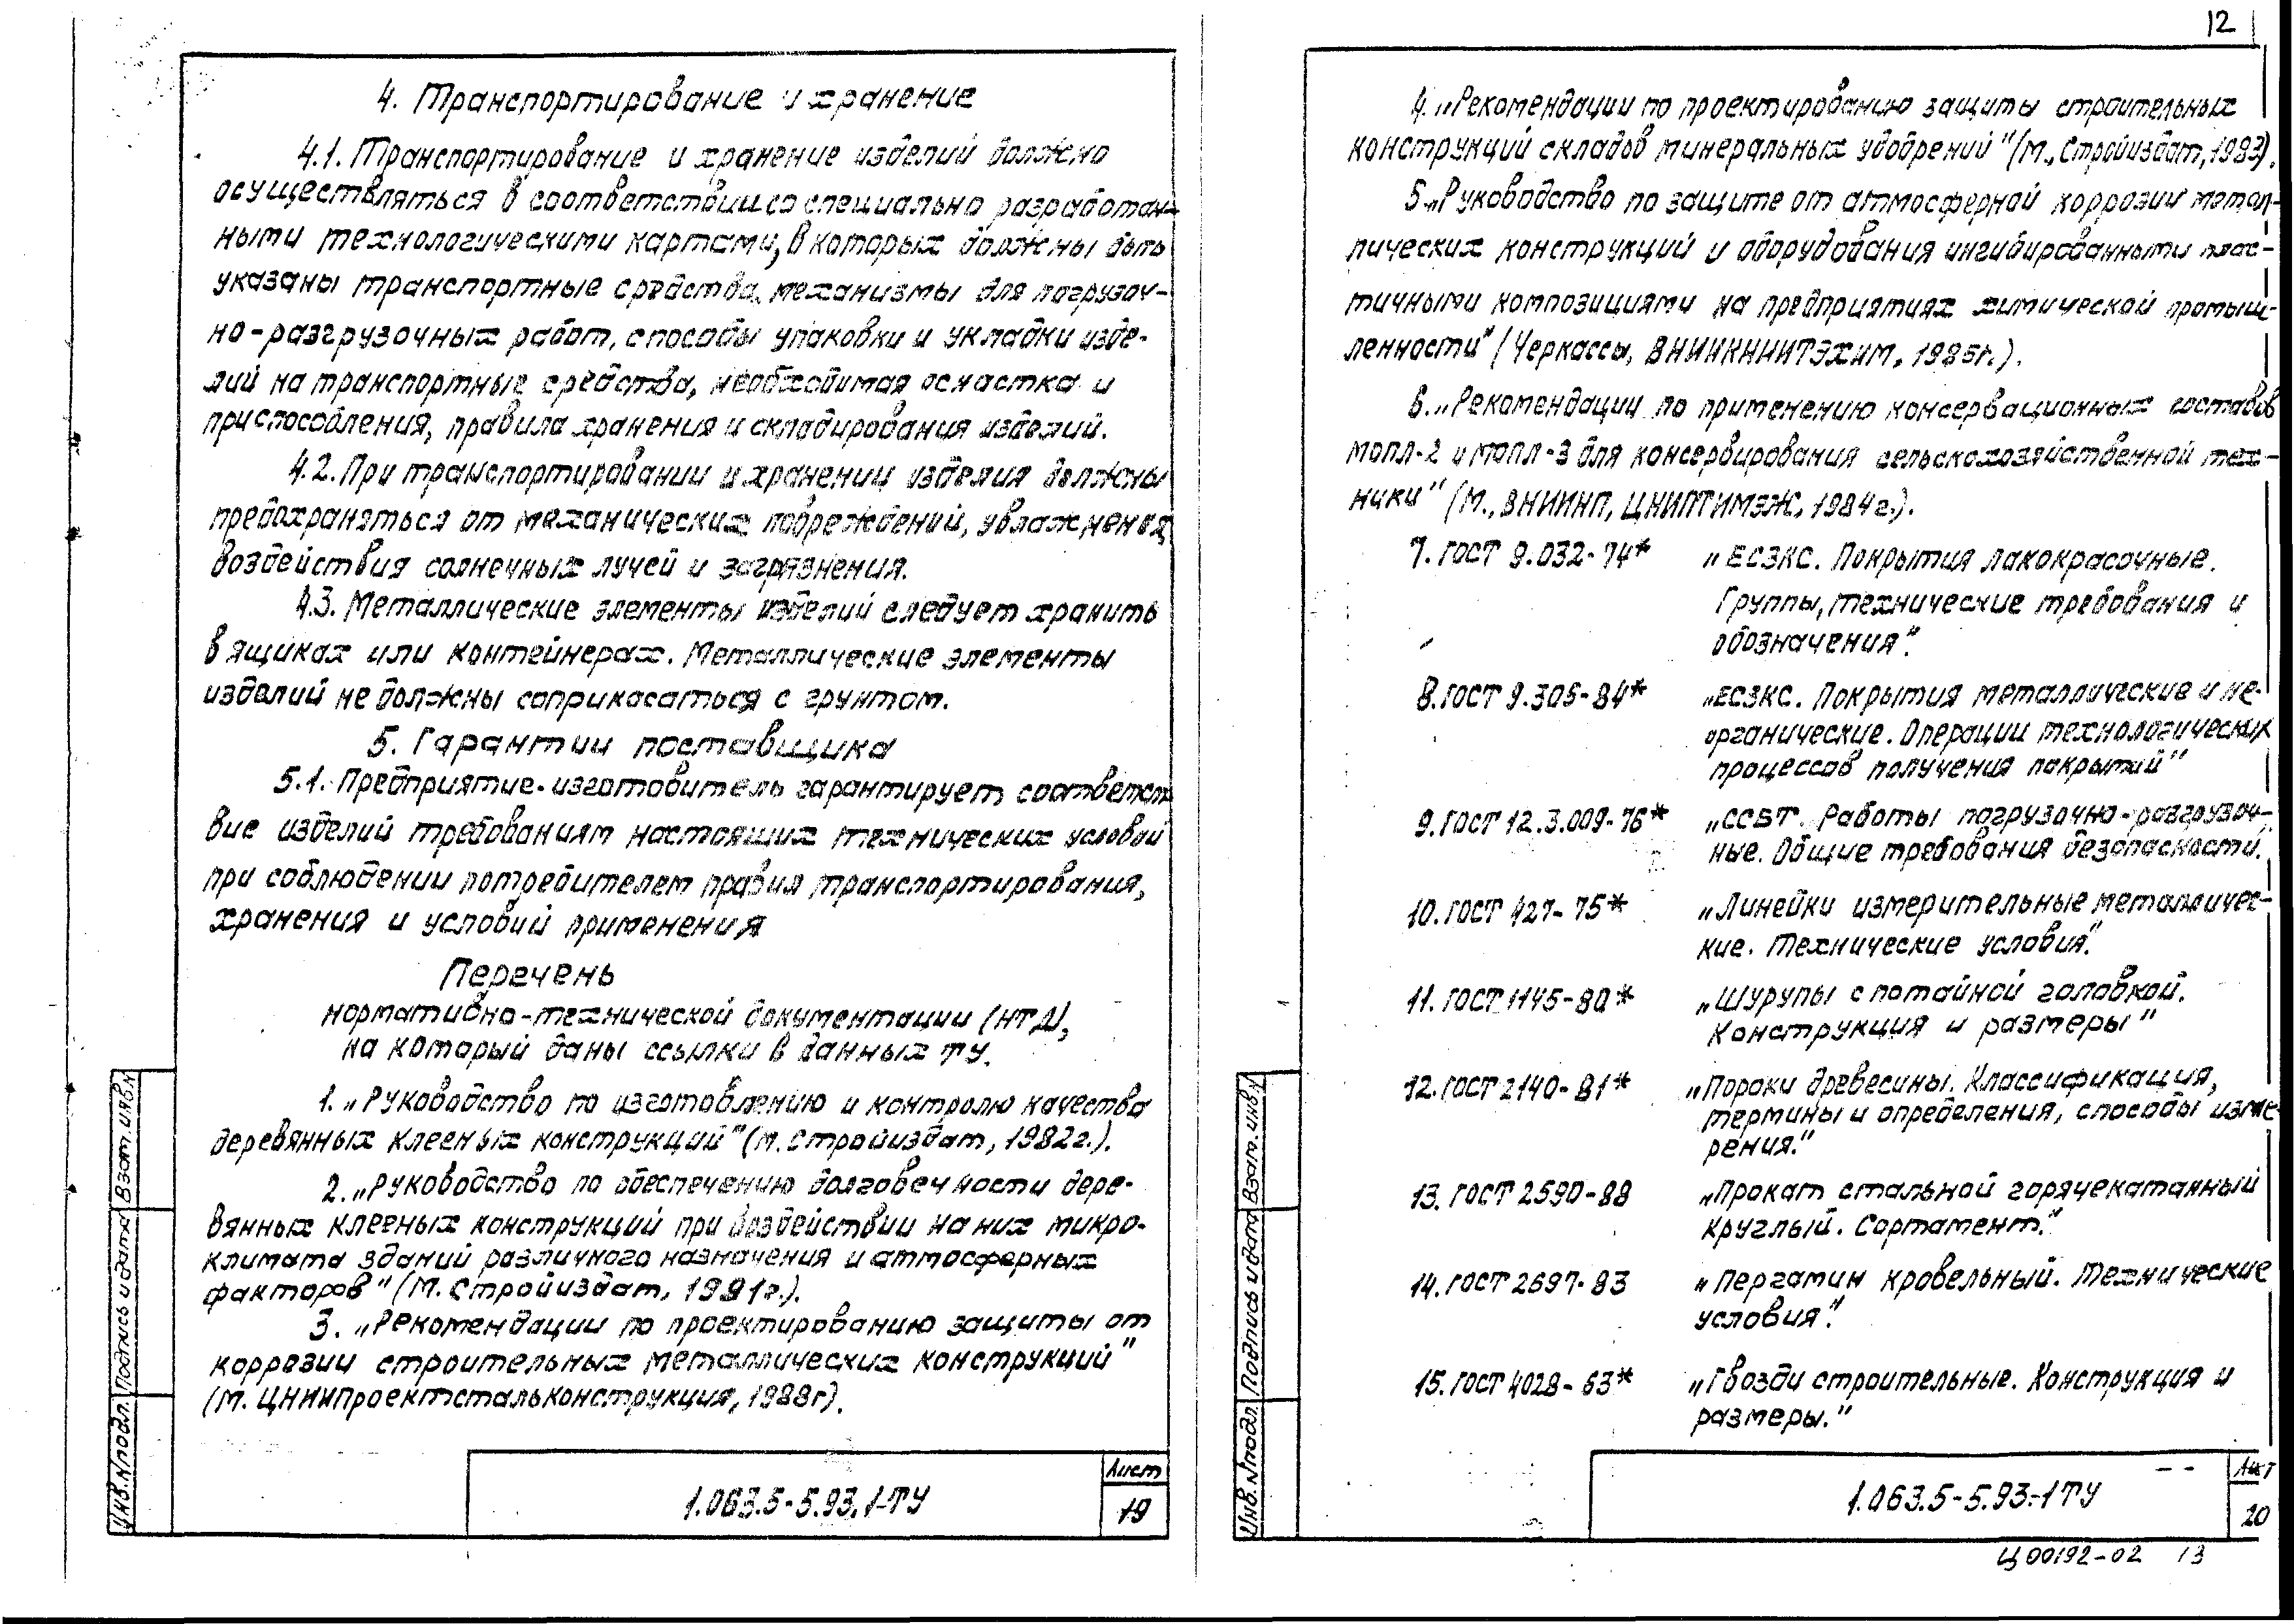 4. Транспортирование и хранение
4.1. Транспортирование и хранение изделий должно
осуществляться в соответствии со специально разработан-
ными технологическими картами, в которых должны быть
указаны транспортные средства, механизмы для погрузоч-
но-разгрузочных работ, способы упаковки и укладки изде-
лий на транспортные средства, необходимая оснастка и
приспособления, правила хранения и складирования изделий.
4.2. При транспортировании и хранении изделия должны
предохраняться от механических повреждений, увлажнения,
воздействия солнечных лучей и загрязнения.
4.3. Металлические элементы изделий следует хранить
в ящиках или контейнерах. Металлические элементы
изделий не должны соприкасаться с грунтом.
5. Гарантии поставщика
5.1. Предприятие-изготовитель гарантирует соответст-
вие изделий требованиям настоящих технических условий
при соблюдении потребителем правил транспортирования,
хранения и условий применения
Перечень
нормативно-технической документации (НТД),
на который даны ссылки в данных ТУ.
1. „Руководство по изготовлению и контролю качества
деревянных клееных конструкций" (М. Стройиздат, 1982г.).
2. „Руководство по обеспечению долговечности дере-
вянных клееных конструкций при воздействии на них микро-
климата зданий различного назначения и атмосферных
факторов" (М. Стройиздат, 1981г.).
3. „Рекомендации по проектированию защиты от
коррозии строительных металлических конструкций"
(М. ЦНИИпроектстальконструкция, 1988г).
Взам. инв.N
Подпись и дата
Инв. N подл.
1.063.5-5.93.1-ТУ
Лист
19
12
4. „Рекомендации по проектированию защиты строительных
конструкций складов минеральных удобрений" (М., Стройиздат, 1983).
5. „Руководство по защите от атмосферной коррозии метал-
лических конструкций и оборудования ингибированными плас-
тичными композициями на предприятиях химической промыш-
ленности" (Черкассы, ВНИИКНИИТЭХИМ, 1985г.).
6. „Рекомендации по применению консервационных составов
мопл-2 и мопл-3 для консервирования сельскохозяйственной тех-
ники" (М., ВНИИНП, ЦНИПТИМЭЖ, 1984г.).
7. ГОСТ 9.032-74* „ЕСЗКС. Покрытия лакокрасочные.
Группы, технические требования и
обозначения".
8. ГОСТ 9.305-84* „ЕСЗКС. Покрытия металлические и не-
органические. Операции технологических
процессов получения покрытий"
9. ГОСТ 12.3.009-76* „ССБТ. Работы погрузочно-разгрузоч-
ные. Общие требования безопасности.
10. ГОСТ 427-75* „Линейки измерительные металличес-
кие. Технические условия".
11. ГОСТ 1145-80* „Шурупы с потайной головкой.
Конструкция и размеры"
12. ГОСТ 2140-81* „Пороки древесины. Классификация,
термины и определения, способы изме-
рения."
13. ГОСТ 2590-88 „Прокат стальной горячекатанный
круглый. Сортамент."
14. ГОСТ 2697-83 „Пергамин кровельный. Технические
условия".
15. ГОСТ 4028-63* „Гвозди строительные. Конструкция и
размеры."
Взам. инв.
Подпись и дата
Инв. N подл.
1.063.5-5.93.-1 ТУ
Лист
20
Ц00192-02 13